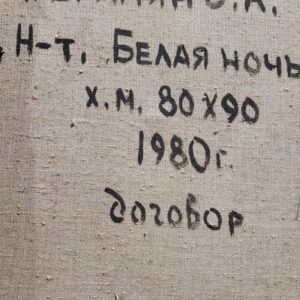 Н-т. Белая ночь
х.м. 80х90
1980г.
договор